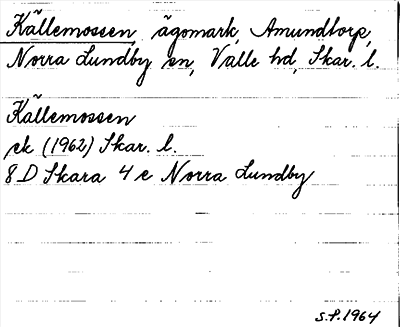 Källemossen, ägomark, Amundtorp,
Norra Lundby sn, Valle hd, Skar. l.
Källemossen
ek (1962) Skar. l.
8 D Skara 4 e Norra Lundby
S.P. 1964